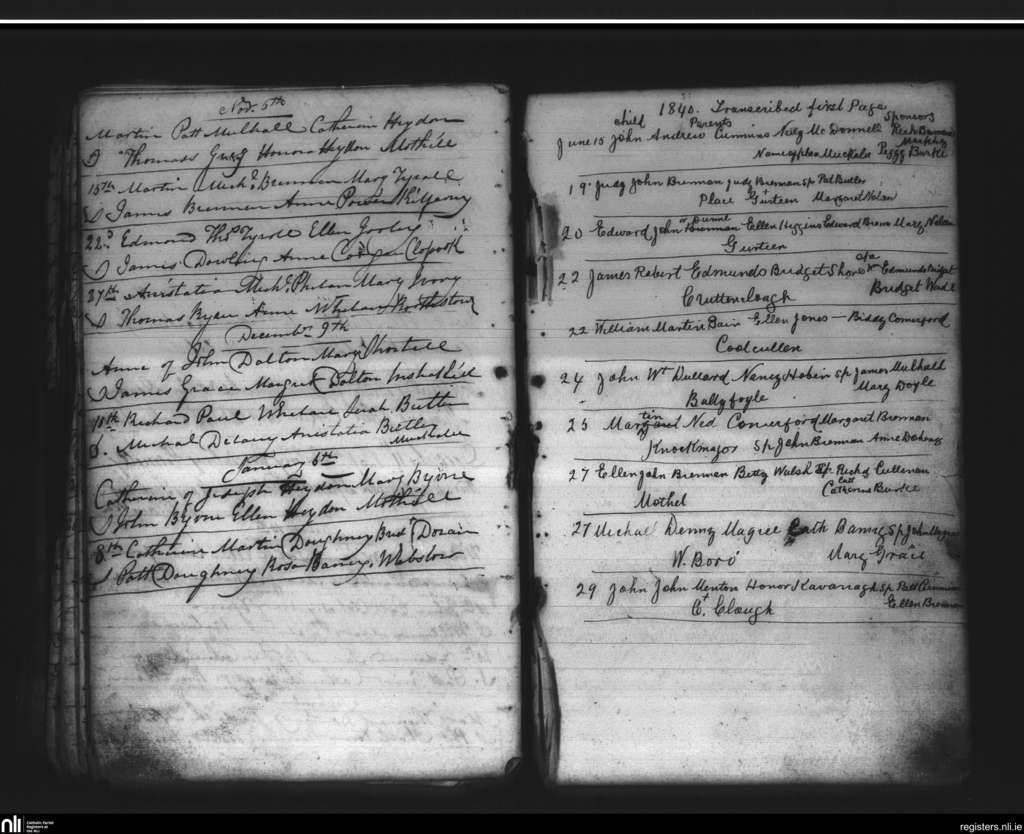 Nov. 5th
Martin Patt Mulhall Catherin Heydon
S Thomass Grag Honora Heydon Mothill
15th Martin Michl. Brennan Mary Tyrell
S James Brennan Anne Power Kilfeany
22d Edmond Thos Tyroll Ellen
S James Dowling Anne Clopook
27th Anistatia Michl. Phelan Mary
S Thomas Ryan Anne Whelan
Decembr 9th
Anne of John Dalton Mary
S James Grace Margret Dalton
10th Richard Paul Whelan Sarah Butler
S. Micheal Delany Anistatia Butler
Muckalee
January 6th
Catherine of Joseph Heydon Mary Byrne
S John Byrne Ellen Heydon Mothill
8th Catherine Martin Doughney Brid Dorain
S Patt Doughney Rosa Webstow
1840. Transcribed first Page
child Parents Sponsors
June 15 John Andrew Cummins Nelly McDonnell Rich Brennan
Murphy
Name of place Muckalee Peggy Burke
19. Judy John Brennan Judy Brennan Sp Pat Butler
Place Gurteen Margaret Nolan
or Dunne
20 Edward John Brennan Ellen Higgins Edward Brenn Mary Nolan
Gurteen
22 James Robert Edmunds Bridget Shore Wm Edmunds
Bridget Wade
Cruttenclough
22 William Martin Bain Ellen Jones — Biddy Comerford
Coolcullen
24 John Wm Dullard Nancy Hobin Sp James Mulhall
Ballyfoyle Mary Doyle
tin
25 Margaret Ned Comerford Margaret Brennan
Knockmajor Sp John Brennan Anne Doheny
27 Ellen John Brennan Betty Walsh Sp. Richd Cullenan
Catt
Mothel Catherine Burke
27 Micheal Denny Magree Cath Bamry Sp John
W. Boro' Mary Grace
29 John John Menton Honor Kavanagh Sp Patt Cummin
C. Clough Ellen Brennan
nli
Catholic Parish
Registers at
the NLI
registers.nli.ie